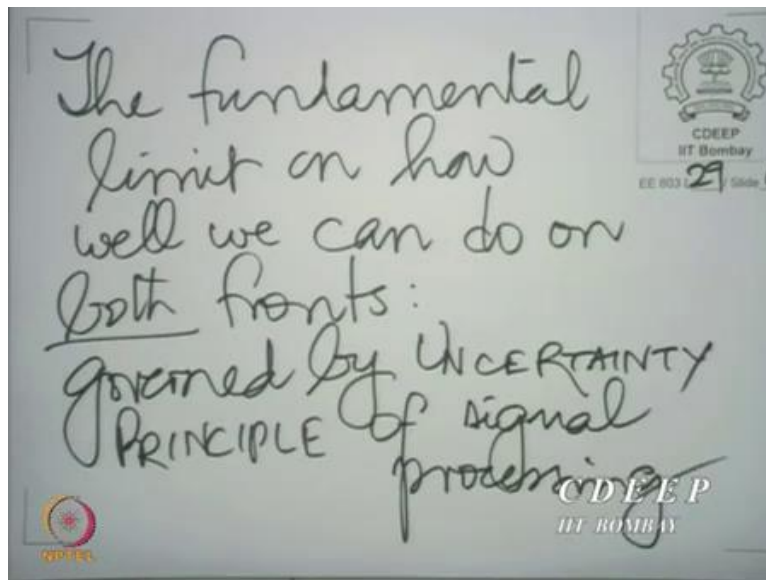 The fundamental
limit on how
well we can do on
both fronts:
governed by UNCERTAINTY
PRINCIPLE of signal
processing
CDEEP
IIT Bombay
EE 803 L 29 / Slide
NPTEL
CDEEP
IIT BOMBAY